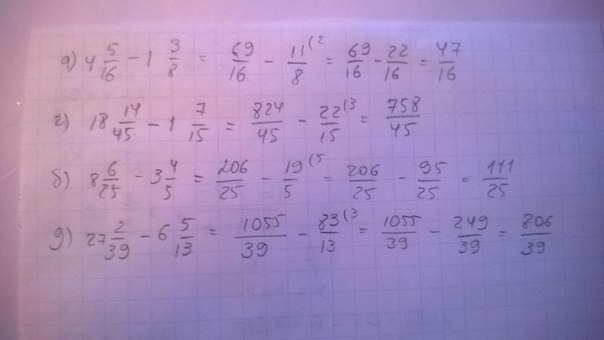 а) 4 5/16 − 1 3/8 = 69/16 − 11/8 (2 = 69/16 − 22/16 = 47/16
г) 18 14/45 − 1 7/15 = 824/45 − 22/15 (3 = 758/45
б) 8 6/25 − 3 4/5 = 206/25 − 19/5 (5 = 206/25 − 95/25 = 111/25
д) 27 2/39 − 6 5/13 = 1055/39 − 83/13 (3 = 1055/39 − 249/39 = 806/39